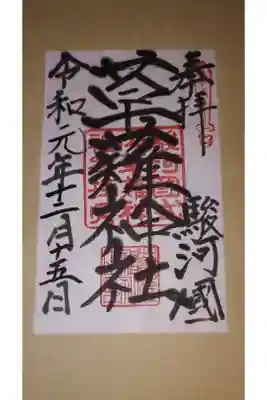 奉拝 駿河國
草薙神社
令和元年十二月十五日